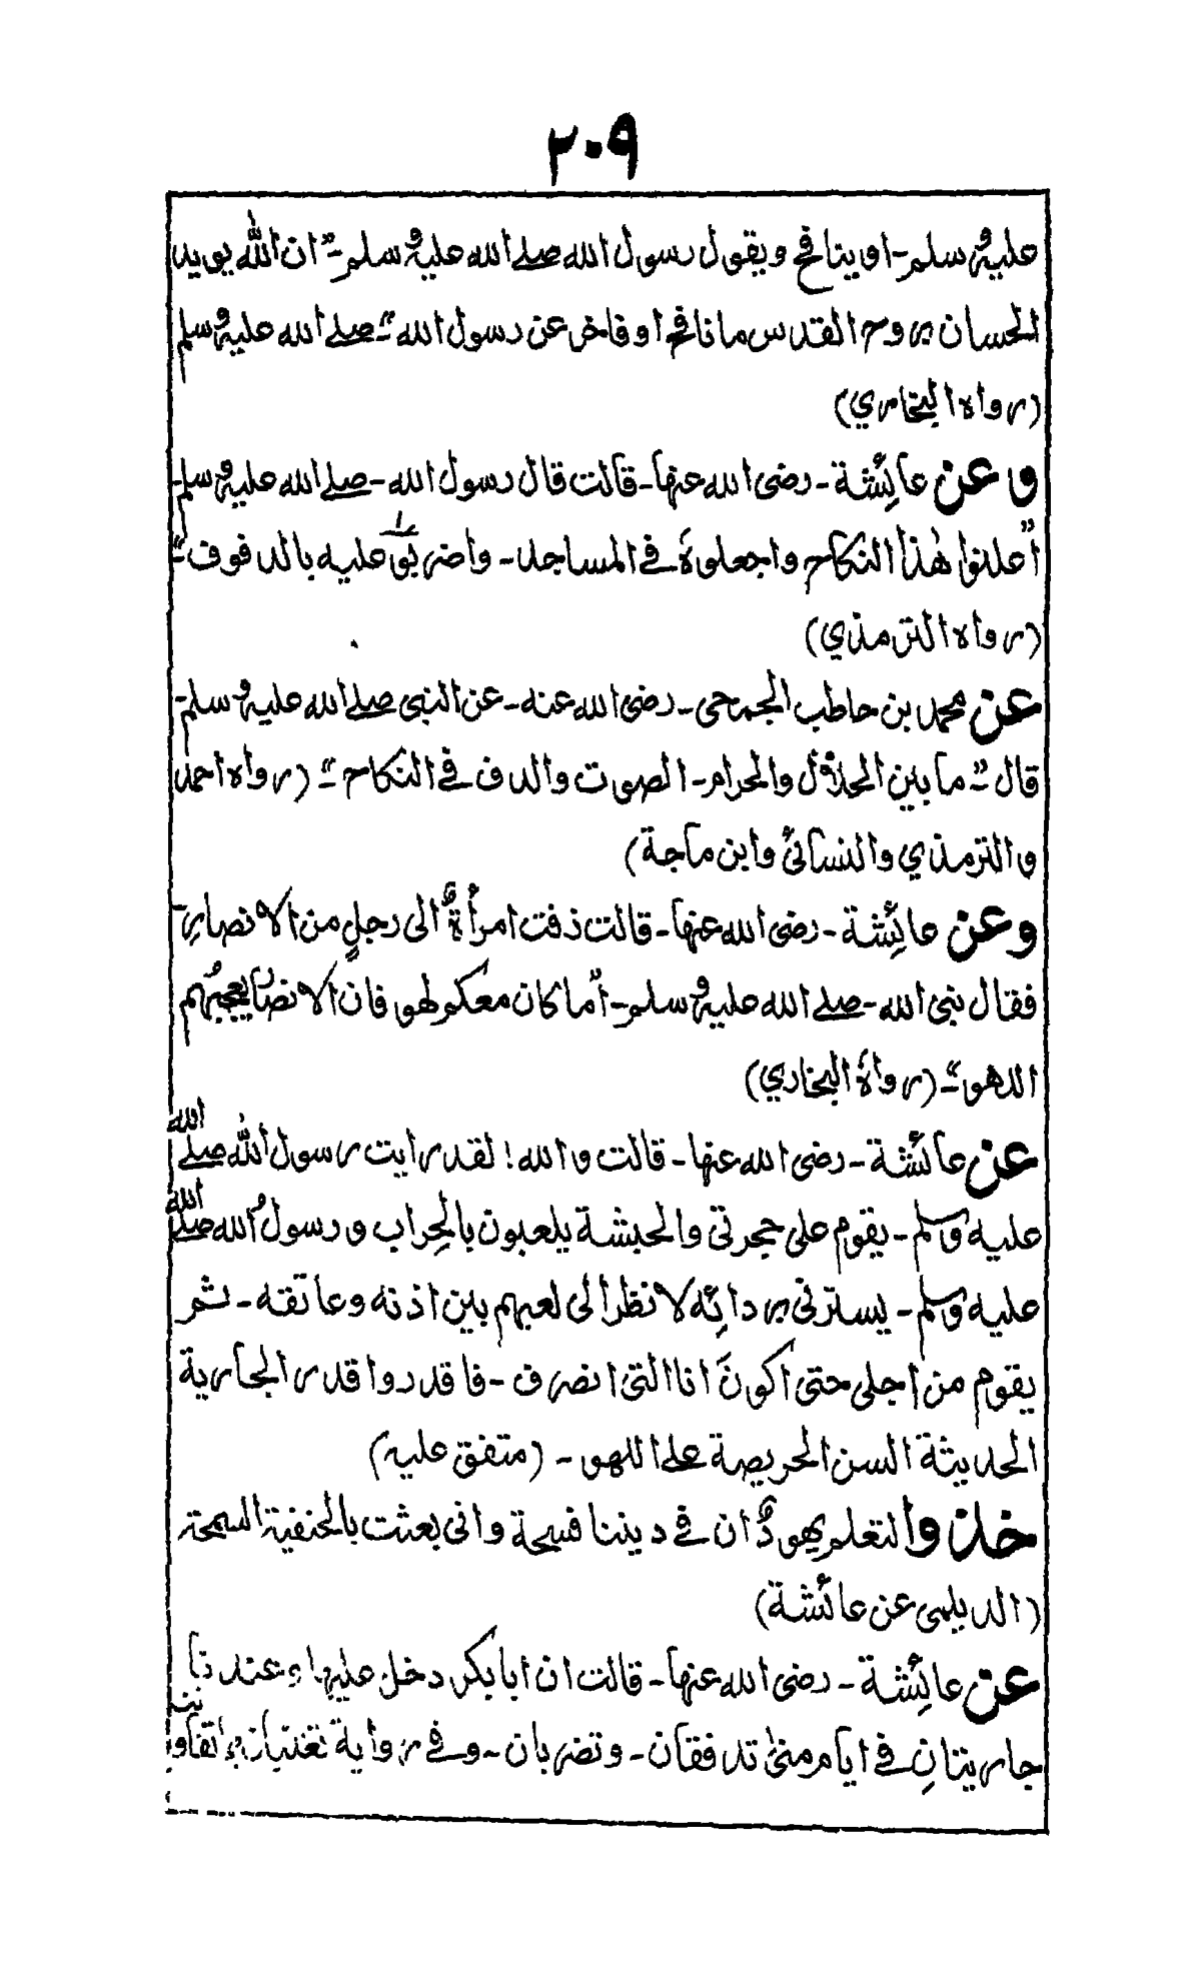 ٢٠٩
عليه وسلم - او ينافح ويقول رسول الله صلى الله عليه وسلم - "ان الله يويد
الحسان بروح القدس ما نافح او فاخر عن رسول الله" - صلى الله عليه وسلم
(رواه البخاري)
وعن عائشة - رضى الله عنها - قالت قال رسول الله - صلى الله عليه وسلم -
"أعلنوا هذا النكاح واجعلوه في المساجد - واضربوا عليه بالدفوف" -
(رواه الترمذي)
عن محمد بن حاطب الجمحى - رضى الله عنه - عن النبى صلى الله عليه وسلم -
قال "ما بين الحلال والحرام - الصوت والدف في النكاح" - (رواه احمد
والترمذي والنسائى وابن ماجة)
وعن عائشة - رضى الله عنها - قالت ذفت امرأةٌ الى رجلٍ من الانصارِ -
فقال نبى الله - صلى الله عليه وسلم - "أما كان معكم لهو فان الانصار يعجبهم
اللهو" - (رواه البخاري)
عن عائشة - رضى الله عنها - قالت والله! لقد رايت رسول الله صلى الله
عليه وسلم - يقوم على حجرتى والحبشة يلعبون بالحِراب ورسولُ الله صلى الله
عليه وسلم - يسترنى بردائِه لا نظر الى لعبهم بين اذنه وعاتقه - ثم
يقوم من اجلى حتى اكونَ انا التى انصرف - فاقدروا قدر الجارية
الحديثة السن الحريصة على اللهو - (متفق عليه)
خذوا لتعلم يهودُ ان في ديننا فسحة وانى بعثت بالحنفية السمحة
(الديلمى عن عائشة)
عن عائِشة - رضى الله عنها - قالت ان ابا بكر دخل عليها وعندنا
جاريتانِ في ايام منىٰ تدففان - وتضربان - وفي رواية تغنيان بما تقاولت